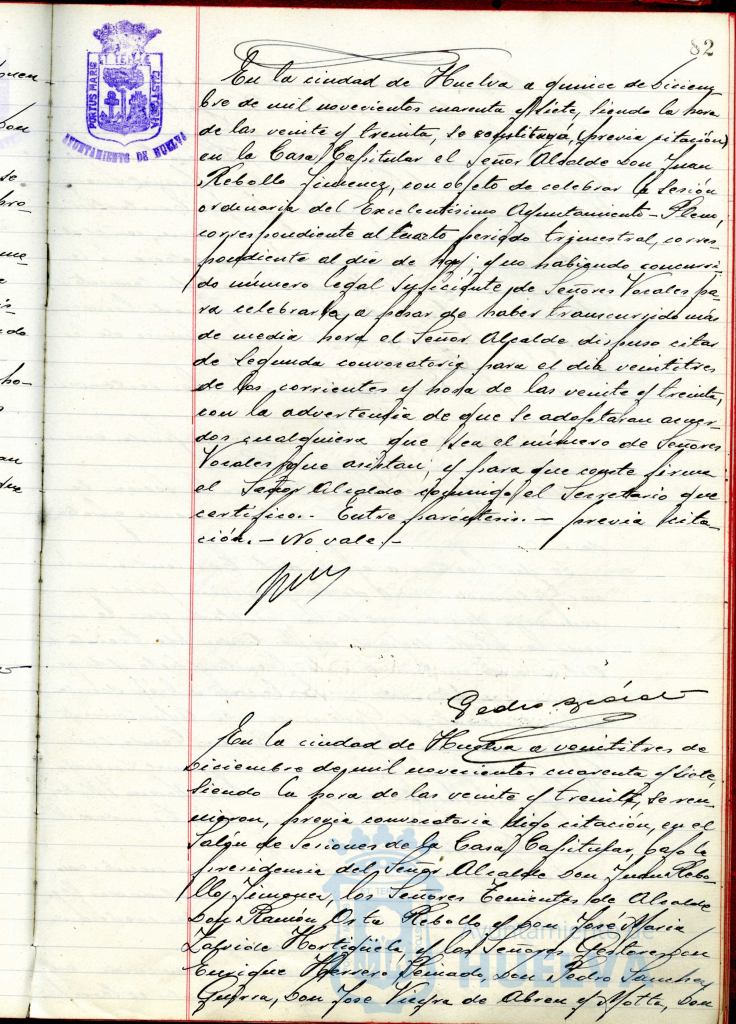 82
PORTUS MARIS
ET TERRÆ
CUSTODIA
AYUNTAMIENTO DE HUELVA
En la ciudad de Huelva a quince de Diciem-
bre de mil novecientos cuarenta y siete, siendo la hora
de las veinte y treinta, se constituya, (previa citación)
en la Casa Capitular el Señor Alcalde Don Juan
Rebollo Jimenez, con objeto de celebrar la sesión
ordinaria del Excelentísimo Ayuntamiento-Pleno,
correspondiente al periodo trimestral, corres-
pondiente al día de hoy; y no habiendo concurri-
do número legal suficiente de Señores Vocales pa-
ra celebrarla, a pesar de haber transcurrido más
de media hora el Señor Alcalde dispuso citar
de segunda convocatoria para el día veintitres
de los corrientes y hora de las veinte y treinta,
con la advertencia de que se adoptaran acuer-
dos cualquiera que sea el número de Señores
Vocales que asistan; y para que conste firma
el Señor Alcalde conmigo el Secretario que
certifico.- Entre paréntesis.- previa cita-
ción.- No vale.-
Pedro
En la ciudad de Huelva a veintitres de
Diciembre de mil novecientos cuarenta y siete,
siendo la hora de las veinte y treinta, se reu-
nieron, previa convocatoria digo citación, en el
Salón de Sesiones de la Casa Capitular, bajo la
presidencia del Señor Alcalde Don Juan Rebo-
llo Jimenez, los Señores Tenientes de Alcalde
Don Ramón Osta Rebollo y Don José María
Hortigüela, y los Señores Gestores Don
Enrique Herrero Don Pedro Sanchez
Guerra, Don José Vieyra de Abreu y Motta, Don
Ayuntamiento de
HUELVA